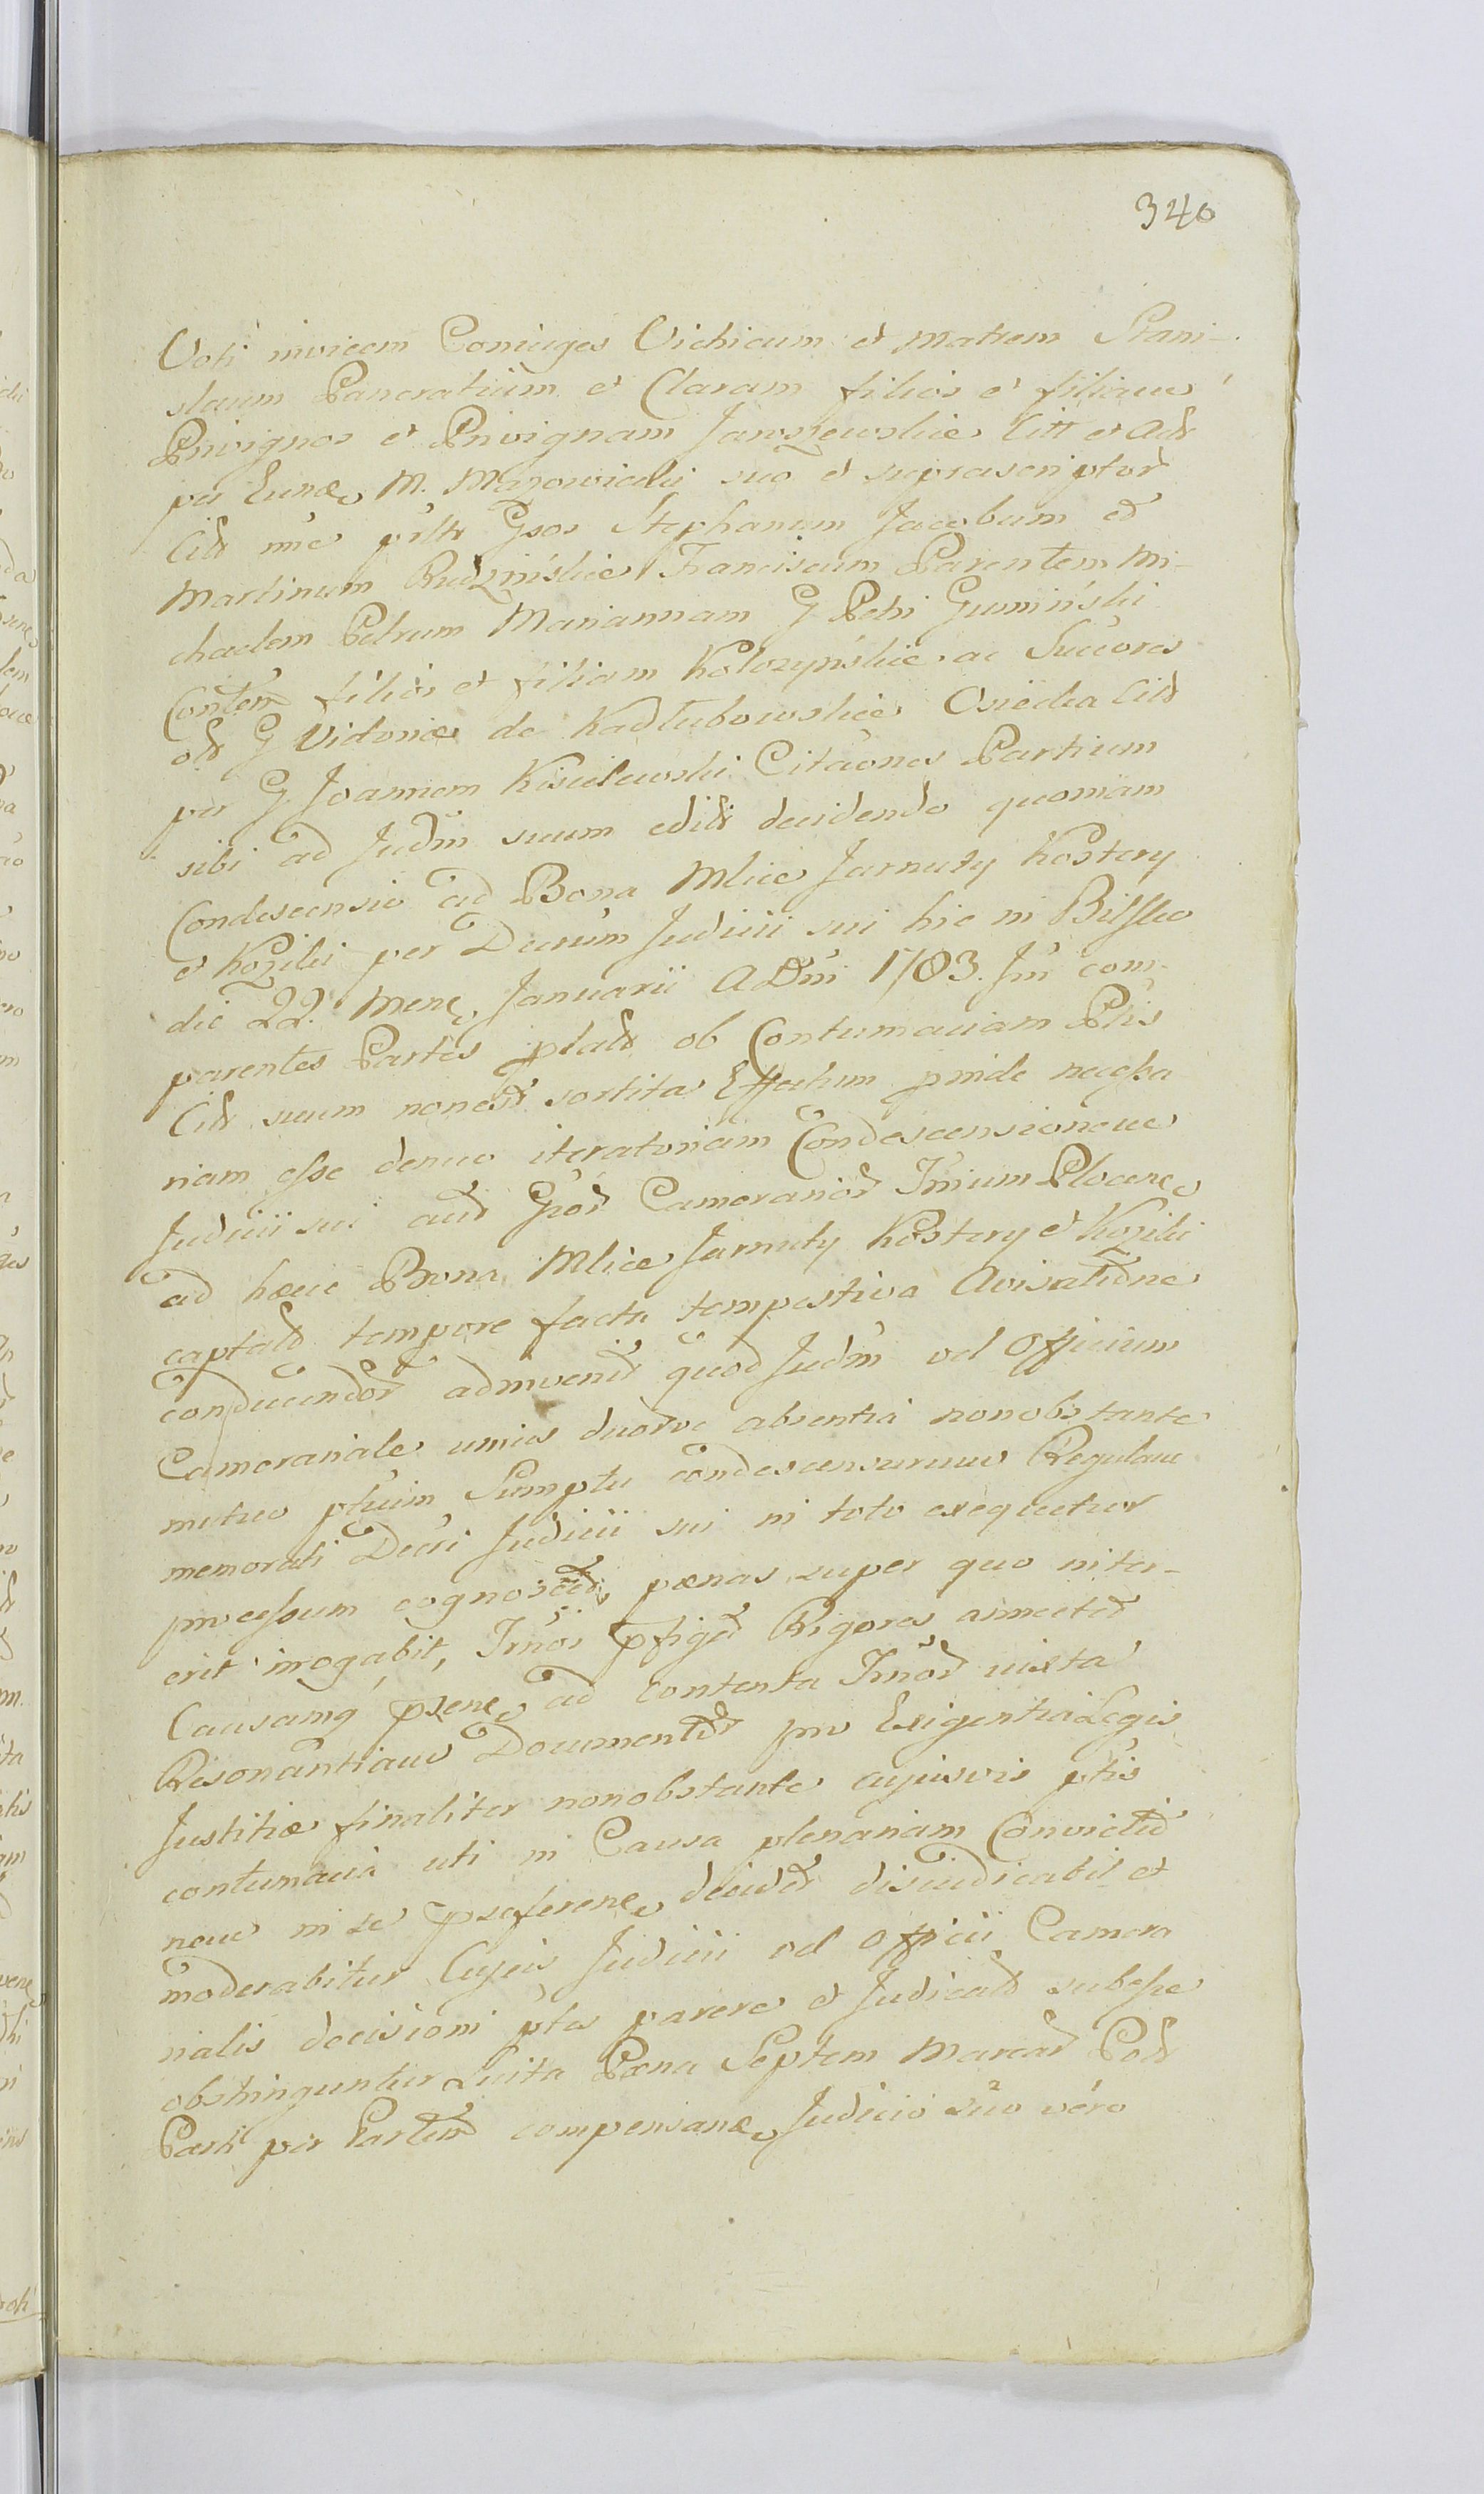 340
Voti invicem Coniuges Vichicum et Matrem Stani-
slaum Pancratium et Claram filios et filiam
Privignos et Privignam Jaroszewskie Citt et Actt
per eund M. Mazowiecki suo et suprascriptor
Citt nne Gsos Stephanum Jacobum et
Martinum Rudzińskie Franciscum Parentem Mi-
chaelem Petrum Mariannam G Petri Gumiński
Contem filios et filiam Kołozynskie ac Succores
olt G Vidonie de Kadłubowskie Osiecka Citt
per G Joannem Kisielewski Citaones Partium
sibi ad Judm suum edit decidendo quoniam
Condescensio ad Bona Mlice Jarnuty Kostery
et Kozilki per Decrum Judicii sui hic in Bilsko
die 22. Mens Januarii A Dni 1783. Jn com-
parentes Partes plalt ob Contumaciam Ptis
Citt suum nonest sortita Effectum pinde necessa
riam esse denuo iteratoriam Condescensionem
Judicii sui aut Gsor Camerarior Trium Plocens
ad haec Bona Mlice Jarnuty Kostery et Kozilki
captald tempore facta tempestiva Avisatione
conducendor adinvenit quod Judm vel Officium
Camerariale unius duorve absentia nonobstante
mutuo ptium Sumptu condescensurum Regulam
memorati Decri Judicii sui in toto exequetur
processum cognoscet, paenas super quo inter-
erit irrogabit, Trnos pfiget Rigores annectet
Causamq psene ad contenta Trnor iuxta
Resonantiam Documentor pro Exigentia Legis
Justitiae finaliter nonobstante cujusvis ptis
contumacia uti in Causa plenariam Convictio
nem in se praeferens decidet disiudicabit et
moderabitur Cujus Judicii vel Officii Camera
rialis decisioni ptes parere et Judicatt subesse
obstringuntur Luita Paena Septem Marcar Polt
Parti per Partem compensand Judicio suo vero